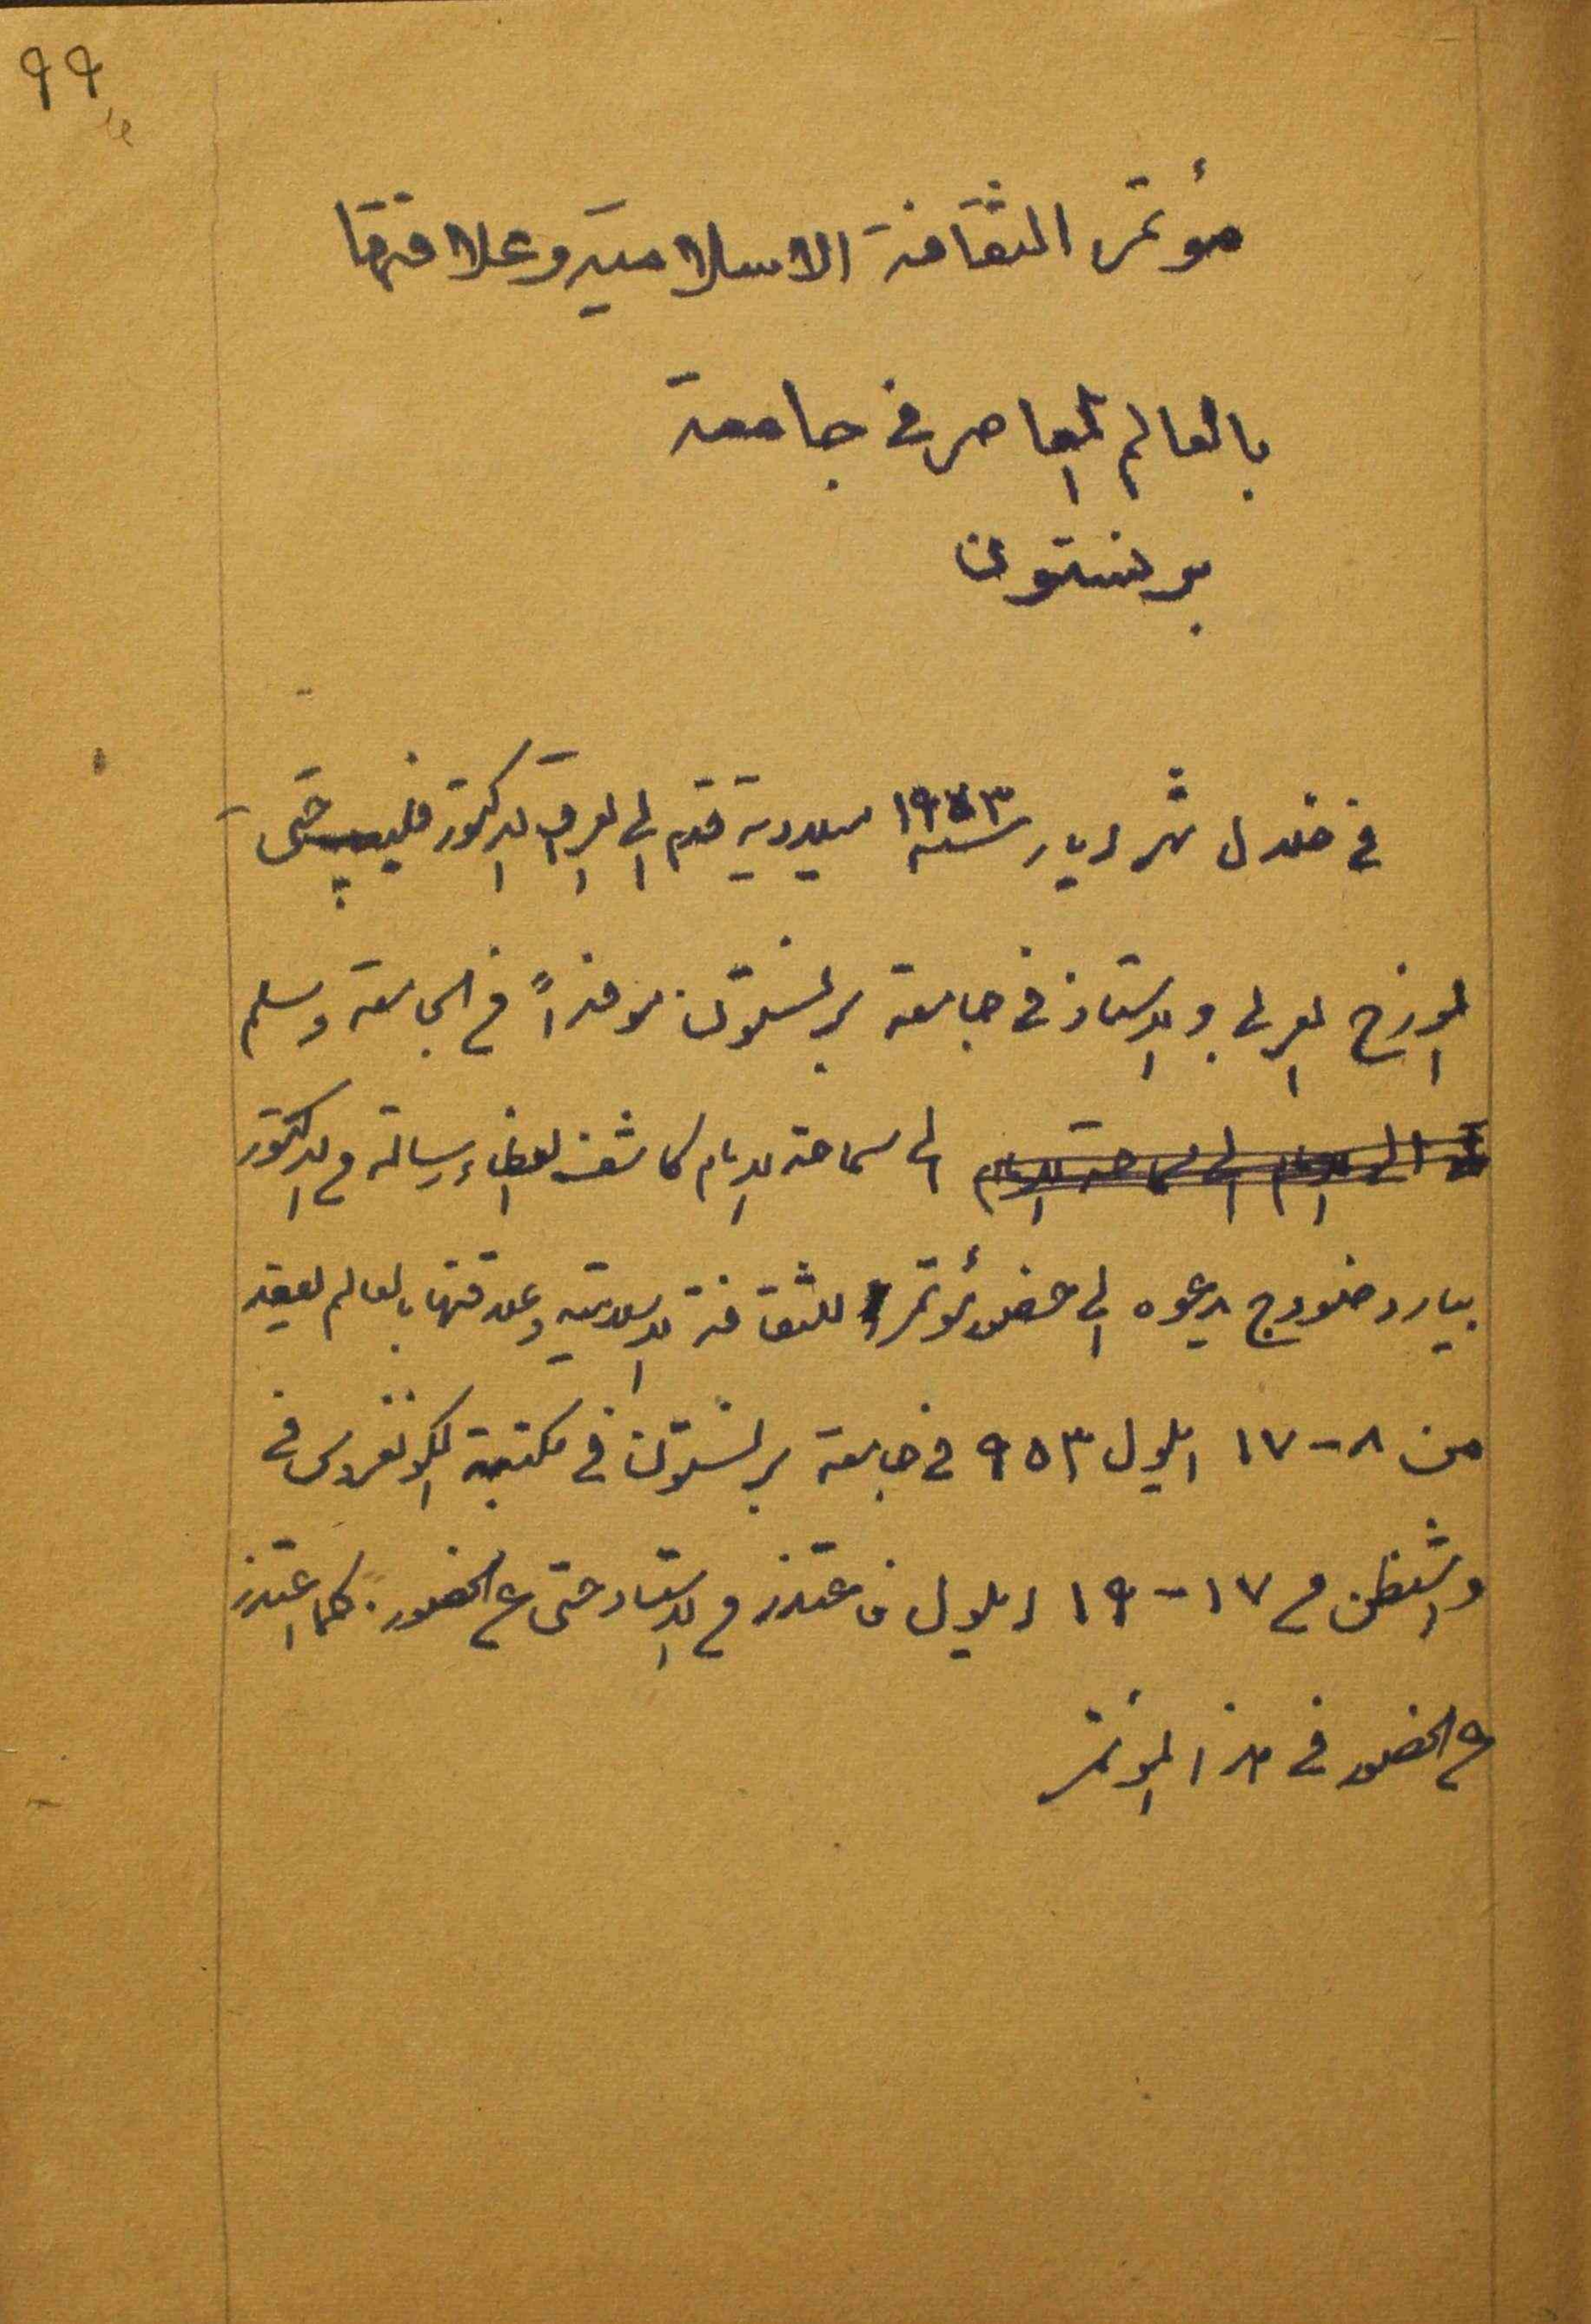 ٩٩
مؤتمر الثقافة الاسلامية وعلاقتها
بالعالم المعاصر في جامعة
برنستون
في خلال شهر ايار سنة ١٩٥٣ ميلادية قدم الى العراق الدكتور فليب حتي
المورخ العربي والاستاذ في جامعة برنستون موفداً من الجامعة وسلم
الى سماحة الامام كاشف الغطاء رسالة من الدكتور
بيارد ضودج يدعوه الى حضور مؤتمر للثقافة الاسلامية وعلاقتها بالعالم لعقد
من ٨-١٧ ايلول ٩٥٣ في جامعة برنستون في مكتبة الكونغرس في
واشنطن من ١٧-١٩ ايلول فاعتذر من الاستاذ حتى عن الحضور. كما اعتذر
عن الحضور في هذا المؤتمر